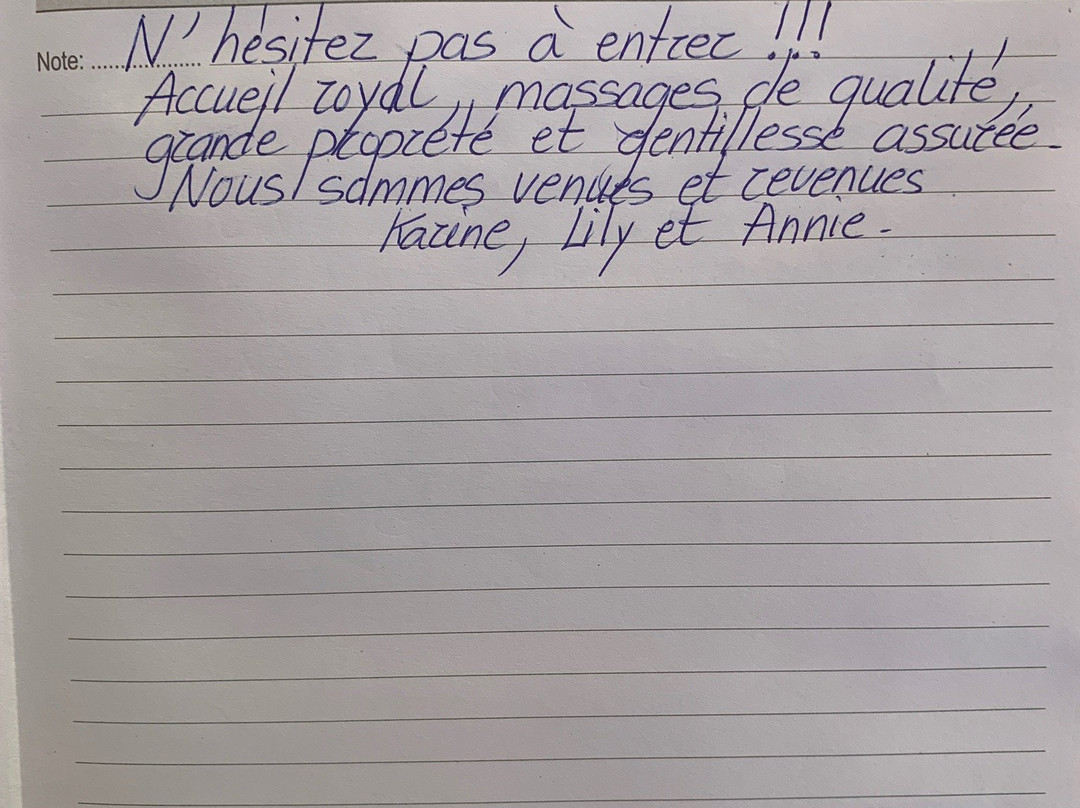 Note: ........ N'hésitez pas à entrer !!!
Accueil royal, massages de qualité,
grande propreté et gentillesse assurée.
Nous sommes venues et revenues
Karine, Lily et Annie.